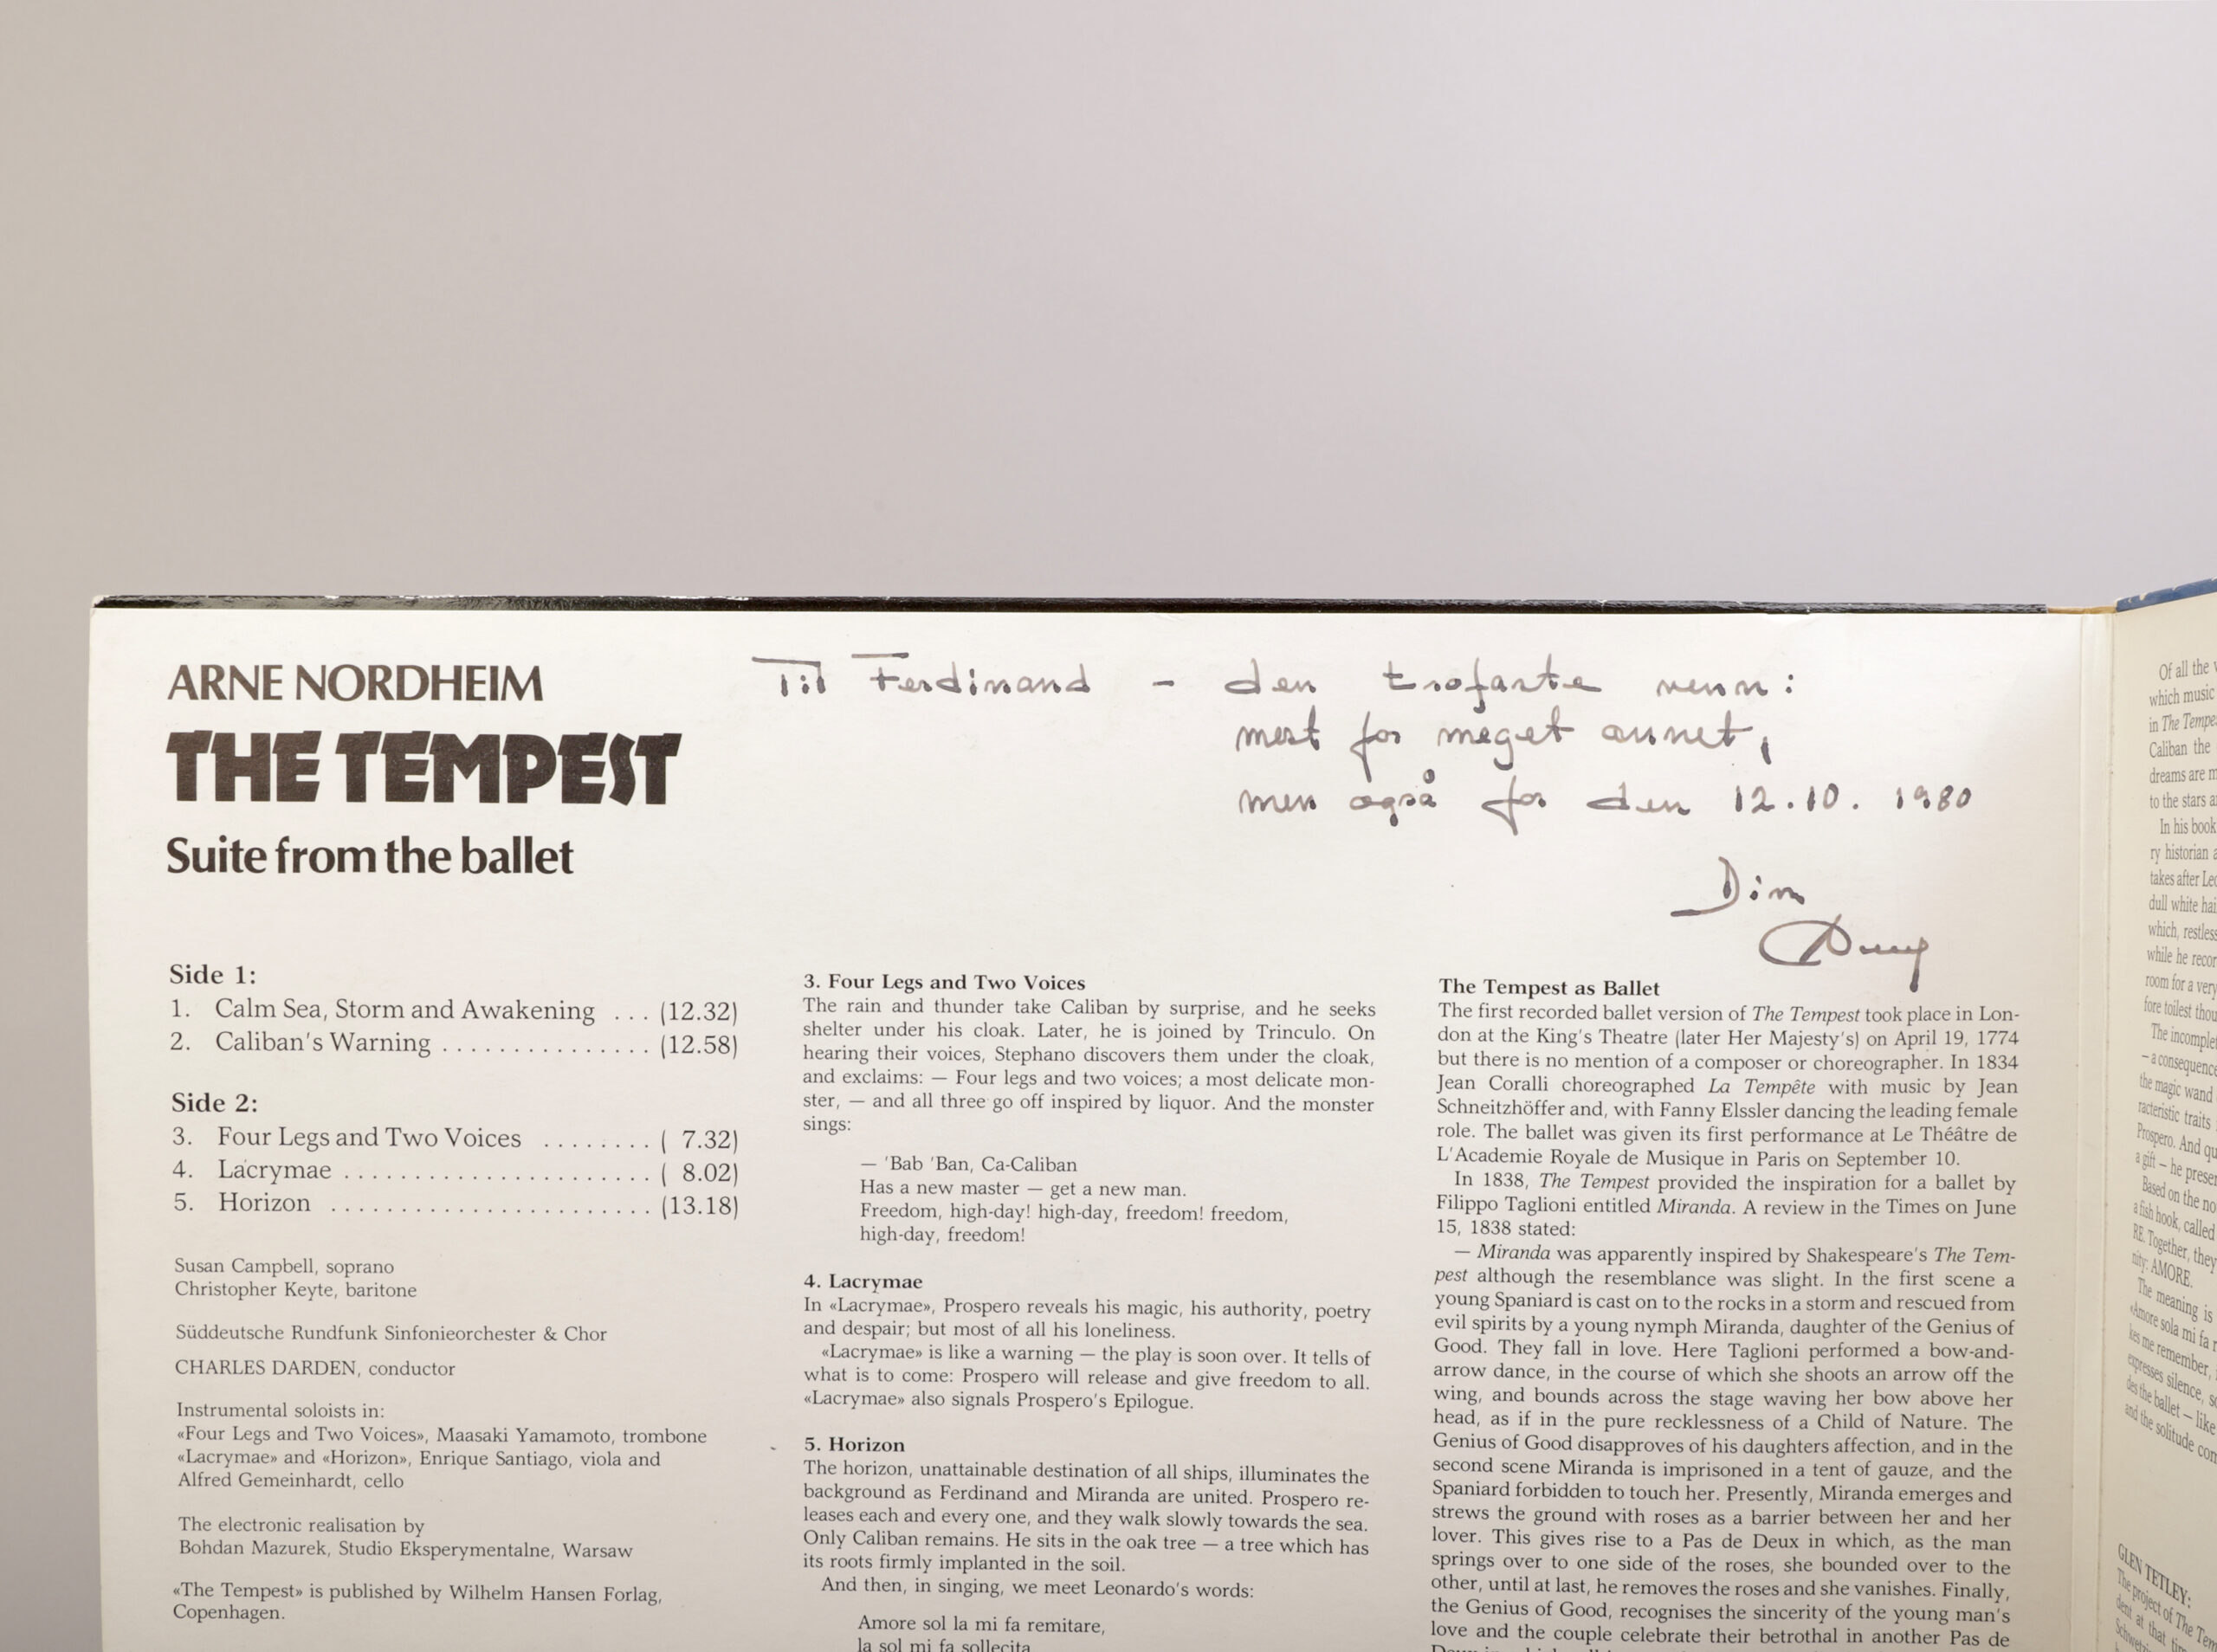 ARNE NORDHEIM
THE TEMPEST
Suite from the ballet
Til Ferdinand – den trofaste venn:
mest for meget annet,
men også for den 12.10. 1980
Din
Side 1:
1. Calm Sea, Storm and Awakening ... (12.32)
2. Caliban's Warning ............... (12.58)
Side 2:
3. Four Legs and Two Voices ........ ( 7.32)
4. Lacrymae ...................... ( 8.02)
5. Horizon ....................... (13.18)
Susan Campbell, soprano
Christopher Keyte, baritone
Süddeutsche Rundfunk Sinfonieorchester & Chor
CHARLES DARDEN, conductor
Instrumental soloists in:
«Four Legs and Two Voices», Maasaki Yamamoto, trombone
«Lacrymae» and «Horizon», Enrique Santiago, viola and
Alfred Gemeinhardt, cello
The electronic realisation by
Bohdan Mazurek, Studio Eksperymentalne, Warsaw
«The Tempest» is published by Wilhelm Hansen Forlag,
Copenhagen.
3. Four Legs and Two Voices
The rain and thunder take Caliban by surprise, and he seeks
shelter under his cloak. Later, he is joined by Trinculo. On
hearing their voices, Stephano discovers them under the cloak,
and exclaims: — Four legs and two voices; a most delicate mon-
ster, — and all three go off inspired by liquor. And the monster
sings:
— 'Bab 'Ban, Ca-Caliban
Has a new master — get a new man.
Freedom, high-day! high-day, freedom! freedom,
high-day, freedom!
4. Lacrymae
In «Lacrymae», Prospero reveals his magic, his authority, poetry
and despair; but most of all his loneliness.
«Lacrymae» is like a warning — the play is soon over. It tells of
what is to come: Prospero will release and give freedom to all.
«Lacrymae» also signals Prospero's Epilogue.
5. Horizon
The horizon, unattainable destination of all ships, illuminates the
background as Ferdinand and Miranda are united. Prospero re-
leases each and every one, and they walk slowly towards the sea.
Only Caliban remains. He sits in the oak tree — a tree which has
its roots firmly implanted in the soil.
And then, in singing, we meet Leonardo's words:
Amore sol la mi fa remitare,
la sol mi fa sollecita
The Tempest as Ballet
The first recorded ballet version of The Tempest took place in Lon-
don at the King's Theatre (later Her Majesty's) on April 19, 1774
but there is no mention of a composer or choreographer. In 1834
Jean Coralli choreographed La Tempête with music by Jean
Schneitzhöffer and, with Fanny Elssler dancing the leading female
role. The ballet was given its first performance at Le Théâtre de
L'Academie Royale de Musique in Paris on September 10.
In 1838, The Tempest provided the inspiration for a ballet by
Filippo Taglioni entitled Miranda. A review in the Times on June
15, 1838 stated:
— Miranda was apparently inspired by Shakespeare's The Tem-
pest although the resemblance was slight. In the first scene a
young Spaniard is cast on to the rocks in a storm and rescued from
evil spirits by a young nymph Miranda, daughter of the Genius of
Good. They fall in love. Here Taglioni performed a bow-and-
arrow dance, in the course of which she shoots an arrow off the
wing, and bounds across the stage waving her bow above her
head, as if in the pure recklessness of a Child of Nature. The
Genius of Good disapproves of his daughters affection, and in the
second scene Miranda is imprisoned in a tent of gauze, and the
Spaniard forbidden to touch her. Presently, Miranda emerges and
strews the ground with roses as a barrier between her and her
lover. This gives rise to a Pas de Deux in which, as the man
springs over to one side of the roses, she bounded over to the
other, until at last, he removes the roses and she vanishes. Finally,
the Genius of Good, recognises the sincerity of the young man's
love and the couple celebrate their betrothal in another Pas de
Of all the
which music
in The Tempe
Caliban the
dreams are
to the stars
In his book
ry historian
takes after Leo
dull white hai
which, restless
while he recor
room for a very
fore toilest thou
The incomple
– a consequence
the magic wand
racteristic traits
Prospero. And qu
a gift – he presen
Based on the no
a fish hook, called
RE. Together, they
nity: AMORE.
The meaning is
«Amore sola mi fa
kes me remember,
expresses silence,
des the ballet – like
and the solitude com
GLEN TETLEY:
The project of The Tem
dent at that tim